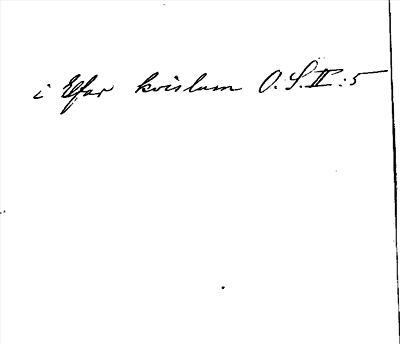 i Elfar kvislum O.S.II:5